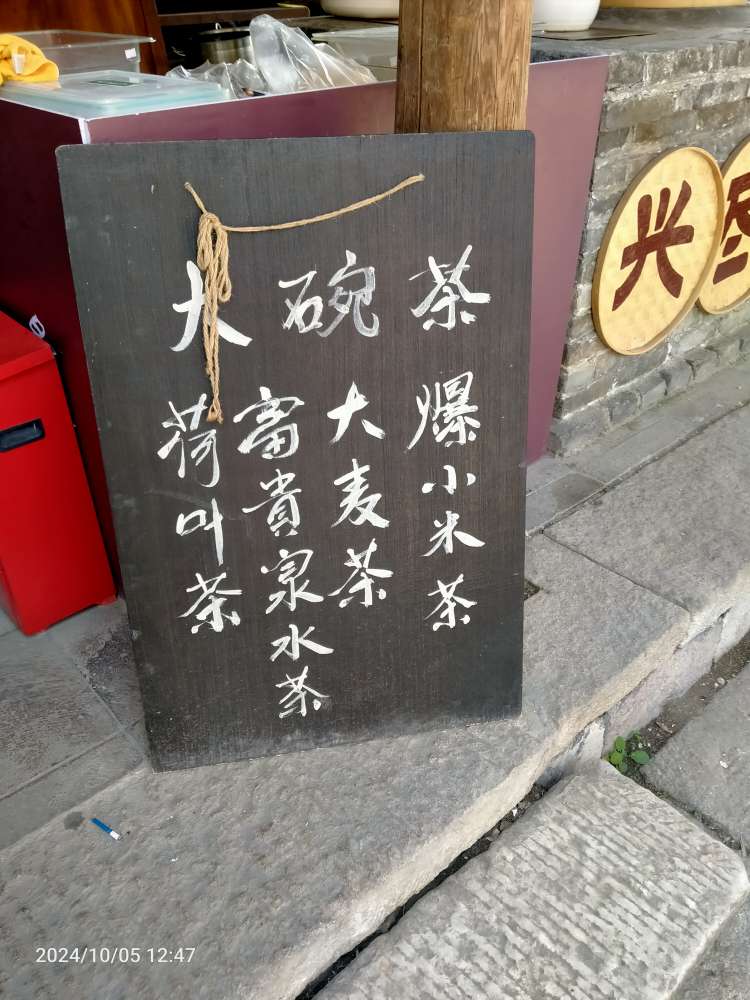 大碗茶
爆小米茶
大麦茶
富貴泉水茶
荷叶茶
兴
2024/10/05 12:47